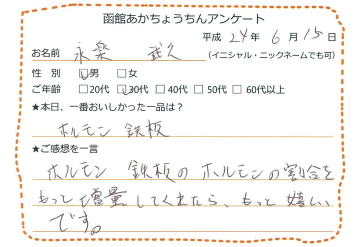 函館あかちょうちんアンケート
平成 24年 6月 15日
お名前 永楽 武久 (イニシャル・ニックネームでも可)
性 別 ☑男 □女
ご年齢 □20代 ☑30代 □40代 □50代 □60代以上
★本日、一番おいしかった一品は?
ホルモン 鉄板
★ご感想を一言
ホルモン 鉄板のホルモンの割合を
もっと増量してくれたら、もっと嬉しい
です。